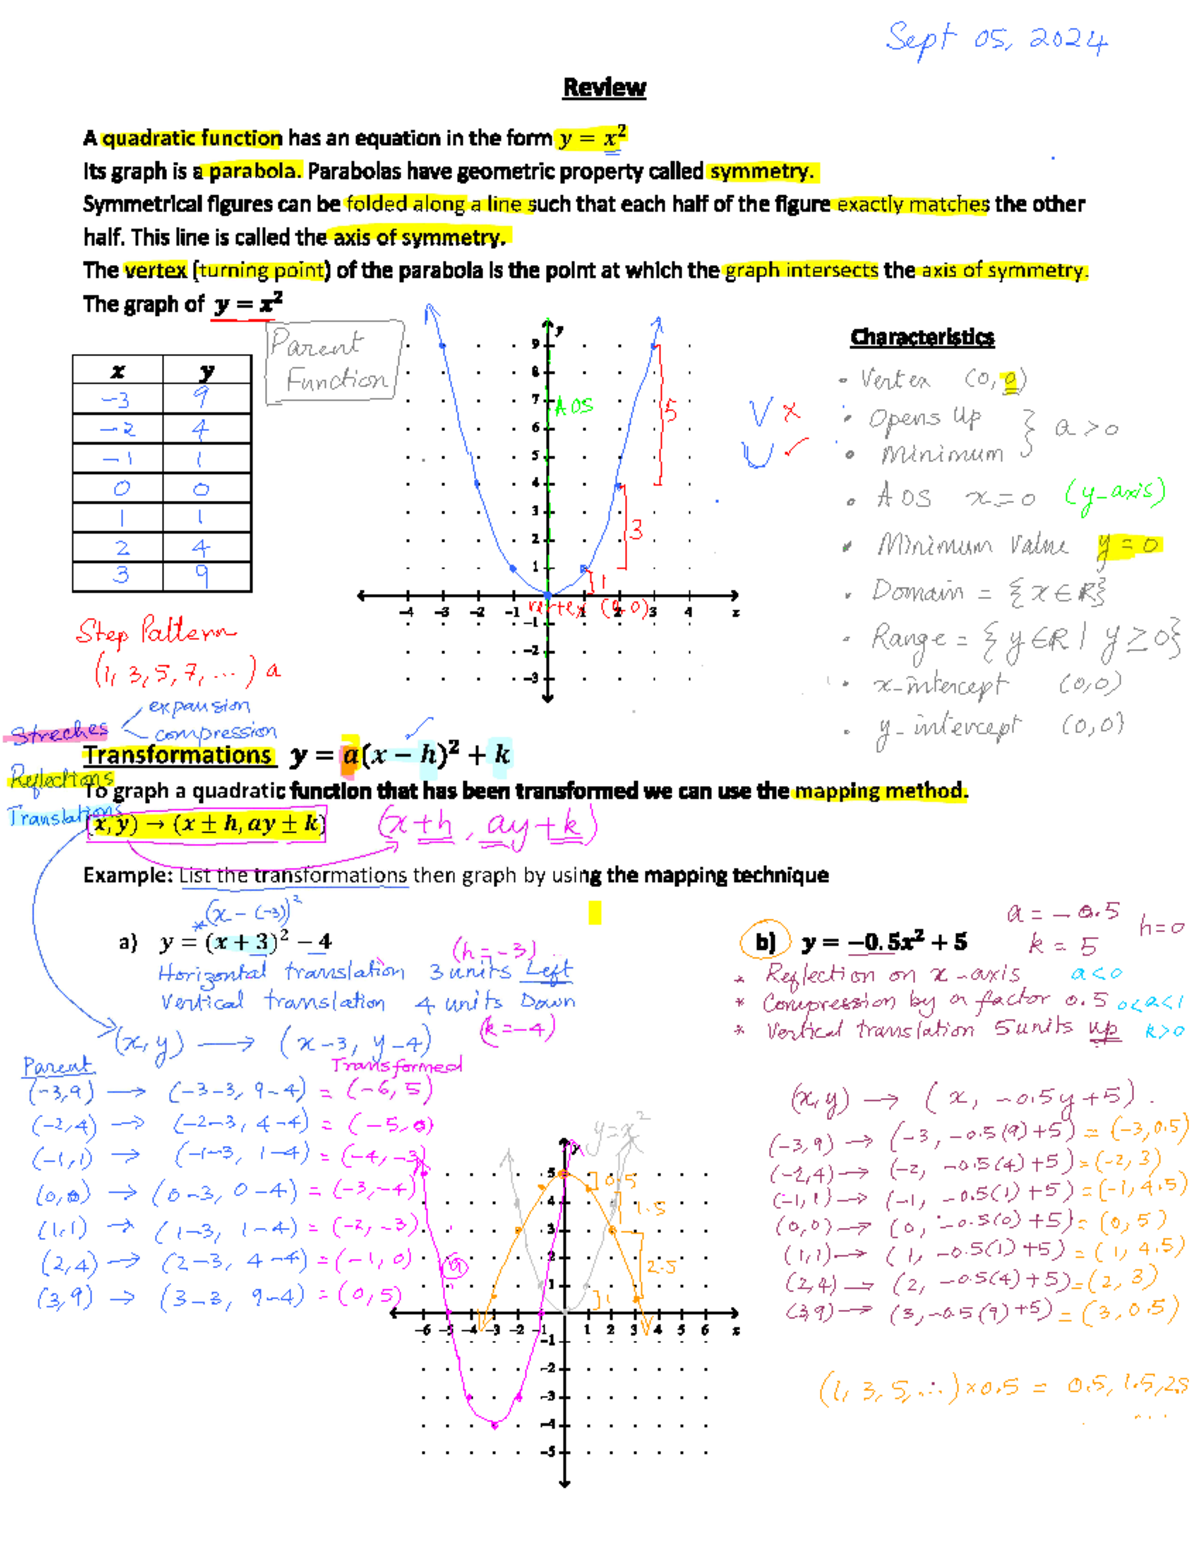 Sept 05, 2024
Review
A quadratic function has an equation in the form y = x²
Its graph is a parabola. Parabolas have geometric property called symmetry.
Symmetrical figures can be folded along a line such that each half of the figure exactly matches the other
half. This line is called the axis of symmetry.
The vertex (turning point) of the parabola is the point at which the graph intersects the axis of symmetry.
The graph of y = x²
Parent
Function
x y
-3 9
-2 4
-1 1
0 0
1 1
2 4
3 9
y
9
8
7
6
5
4
3
2
1
-4 -3 -2 -1 1 2 3 4 x
-1
-2
-3
AOS
5
3
1
vertex (0,0)
V ✗
U ✓
Characteristics
• Vertex (0,0)
• Opens Up } a > 0
• Minimum
• AOS x = 0 (y-axis)
• Minimum Value y = 0
• Domain = {x ∈ R}
• Range = {y ∈ R | y ≥ 0}
• x-intercept (0,0)
• y-intercept (0,0)
Step Pattern
(1, 3, 5, 7, ...) a
Streches
expansion
compression
Reflections
Translations
Transformations y = a(x − h)² + k
To graph a quadratic function that has been transformed we can use the mapping method.
(x, y) → (x ± h, ay ± k)
(x+h, ay+k)
Example: List the transformations then graph by using the mapping technique
* (x - (-3))²
a) y = (x + 3)² − 4
(h = -3)
Horizontal translation 3 units Left
Vertical translation 4 units Down
(k = -4)
(x,y) → (x-3, y-4)
Parent Transformed
(-3,9) → (-3-3, 9-4) = (-6, 5)
(-2,4) → (-2-3, 4-4) = (-5, 0)
(-1,1) → (-1-3, 1-4) = (-4, -3)
(0,0) → (0-3, 0-4) = (-3, -4)
(1,1) → (1-3, 1-4) = (-2, -3)
(2,4) → (2-3, 4-4) = (-1, 0)
(3,9) → (3-3, 9-4) = (0, 5)
a = -0.5
h = 0
k = 5
b) y = −0.5x² + 5
* Reflection on x-axis a<0
* Compression by a factor 0.5 0<a<1
* Vertical translation 5 units up k>0
(x,y) → (x, -0.5y+5).
(-3,9) → (-3, -0.5(9)+5) = (-3, 0.5)
(-2,4) → (-2, -0.5(4)+5) = (-2, 3)
(-1,1) → (-1, -0.5(1)+5) = (-1, 4.5)
(0,0) → (0, -0.5(0)+5) = (0, 5)
(1,1) → (1, -0.5(1)+5) = (1, 4.5)
(2,4) → (2, -0.5(4)+5) = (2, 3)
(3,9) → (3, -0.5(9)+5) = (3, 0.5)
(1, 3, 5, ...) × 0.5 = 0.5, 1.5, 2.5
...
y = x²
y
5
4
3
2
1
-6 -5 -4 -3 -2 -1 1 2 3 4 5 6 x
-1
-2
-3
-4
-5
0.5
1.5
2.5
1